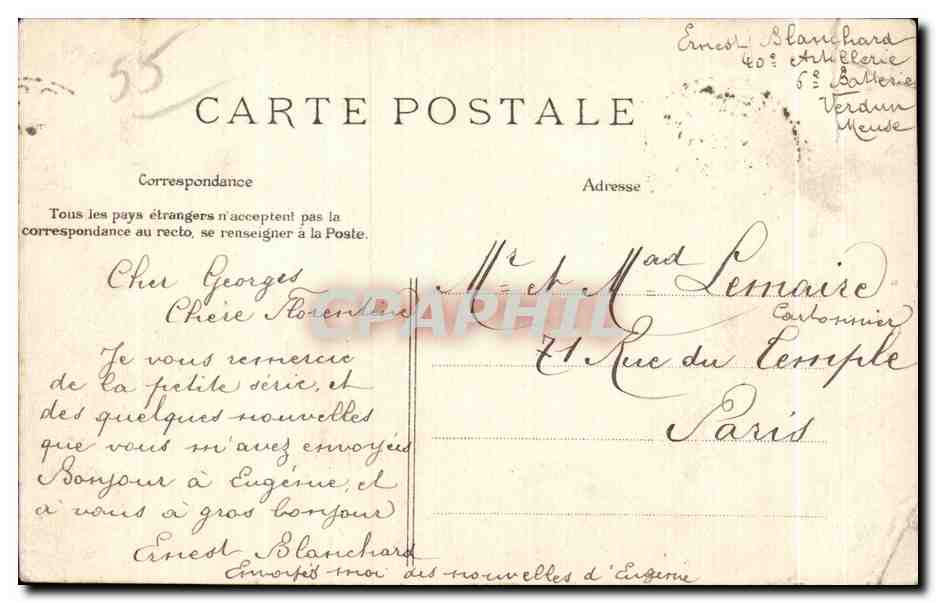 Ernest Blanchard
40e Artillerie
6e Batterie
Verdun
Meuse
55
CARTE POSTALE
Correspondance
Adresse
Tous les pays étrangers n'acceptent pas la
correspondance au recto, se renseigner à la Poste.
Cher Georges
Chère Florentine
Je vous remercie
de la petite série, et
des quelques nouvelles
que vous m'avez envoyées
Bonjour à Eugénie, et
à vous à gros bonjour
Ernest Blanchard
Envoyés moi des nouvelles d'Eugénie
Mr et Mad Lemaire
Cartonnier
71 Rue du Temple
Paris
CPAPHIL